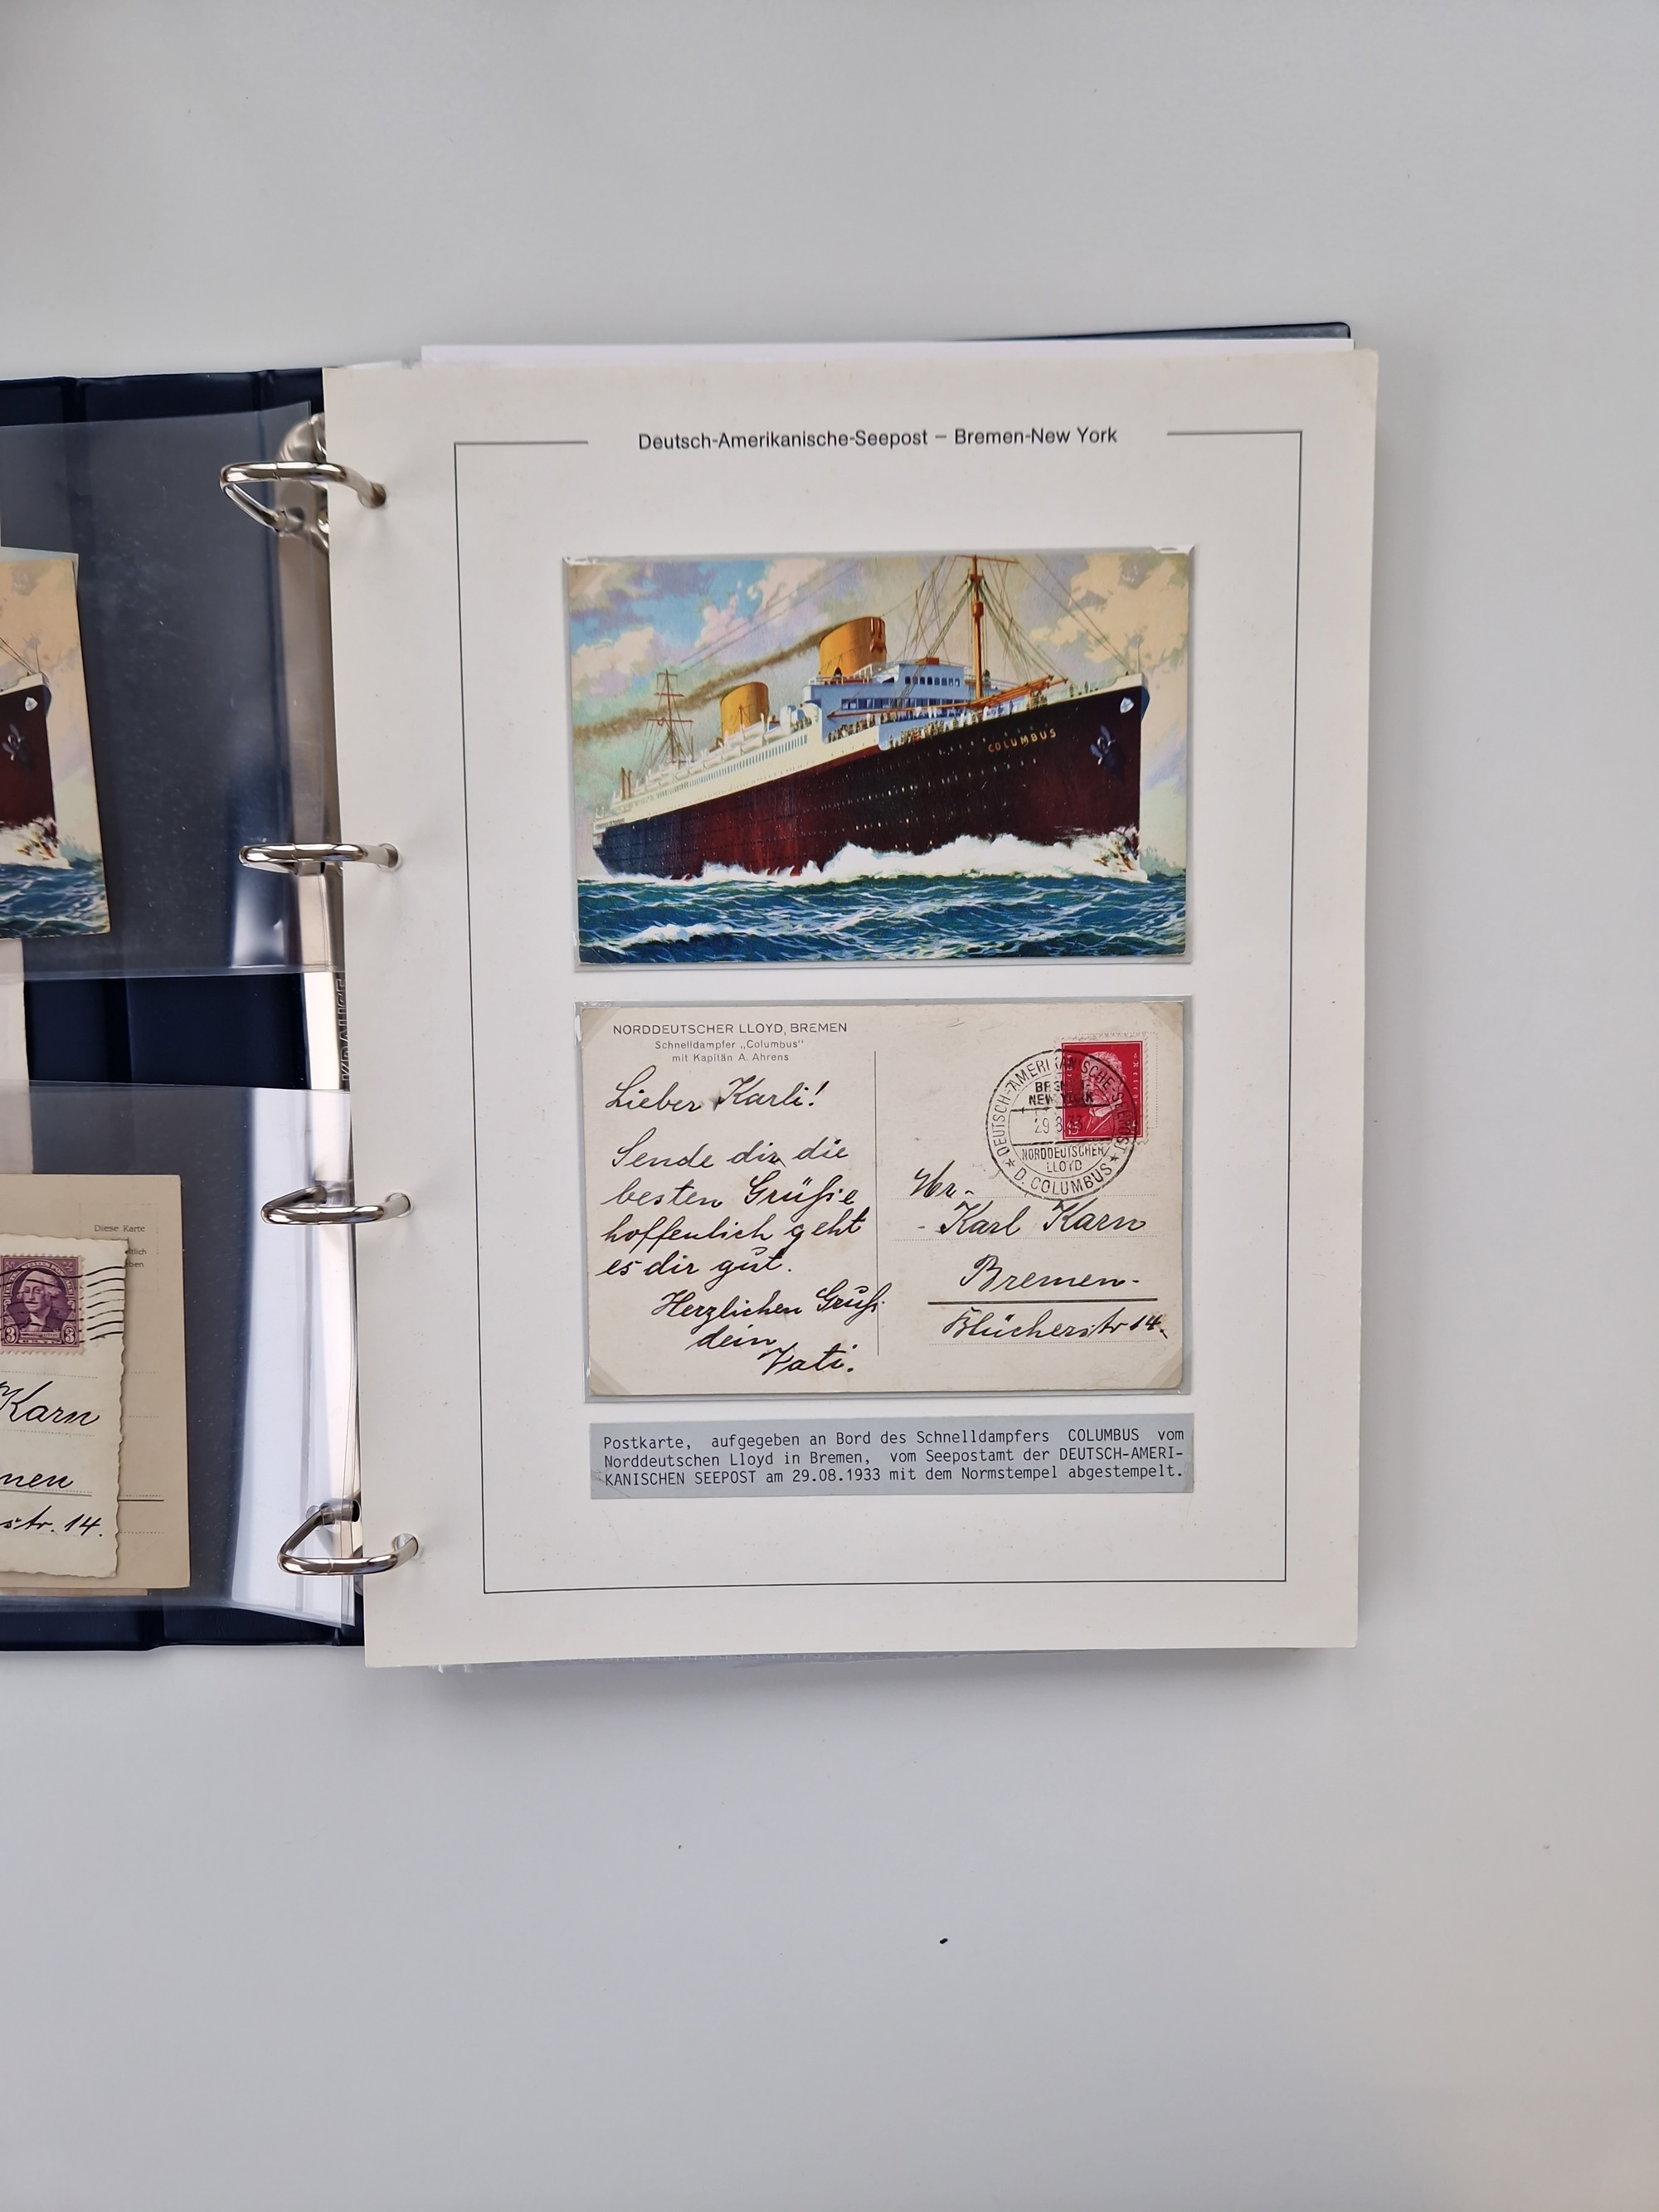 Deutsch-Amerikanische-Seepost – Bremen-New York
COLUMBUS
NORDDEUTSCHER LLOYD, BREMEN
Schnelldampfer „Columbus"
mit Kapitän A. Ahrens
Lieber Karli!
Sende dir die
besten Grüße
hoffenlich geht
es dir gut.
Herzlichen Gruß.
dein
Vati.
DEUTSCH-AMERIKANISCHE-SEEPOST
BREMEN-
NEW YORK
29 8 33
NORDDEUTSCHER
LLOYD
★ D. COLUMBUS ★
15
Hr.
- Karl Karn
Bremen-
Blücherstr 14.
Postkarte, aufgegeben an Bord des Schnelldampfers COLUMBUS vom
Norddeutschen Lloyd in Bremen, vom Seepostamt der DEUTSCH-AMERI-
KANISCHEN SEEPOST am 29.08.1933 mit dem Normstempel abgestempelt.
KRAUSE
Diese Karte
3 3
Karn
men
str. 14.